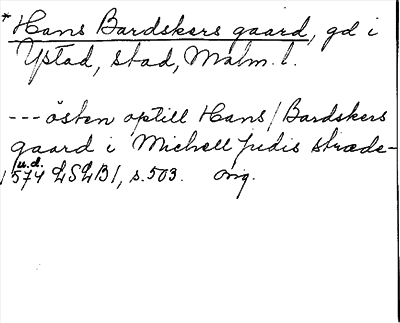 * Hans Bardskers gaard, gd i
Ystad, stad, Malm. l.
--- östen optill Hans / Bardskers
gaard i Michell Judis stræde -
u.d.
1574 LSLB1, s. 503. orig.